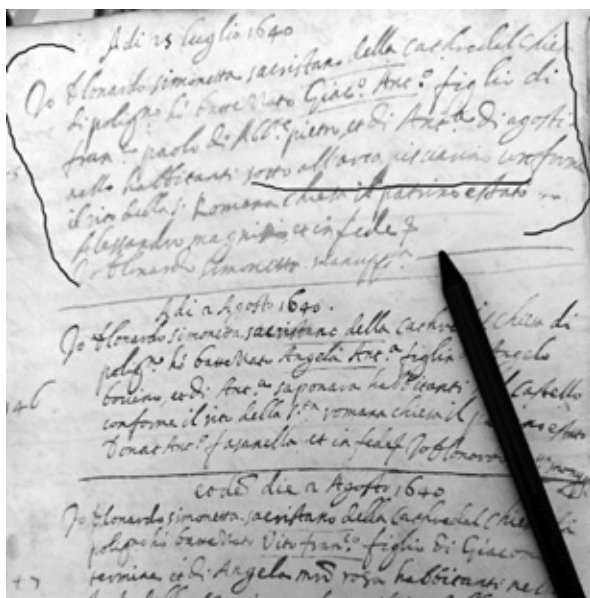 Adi 25 luglio 1640
Io D lonardo simonetta sacristano della Cathredal Chiesa
di polign.o hò battezzato Giac.o Ant.o figlio di
fran.co paolo di pietro, et di Ant.a di agosti
nello habbitanti sotto all'arco pisciarino conforme
il rito della S. Romana Chiesa il patrino è stato
Alessandro magnisi, et in fede
Io D lonardo simonetta
Adi 2 Agosto 1640.
Io D lonardo simonetta sacristano della Cathredal Chiesa di
polig.o hò battezzato Angela Ant.a figlia Angelo
bovino, et di Ant.a saponara habbitanti Castello
conforme il rito della S.ta romana chiesa il è stato
Donat Ant.o fasanella et in fede Io D lonardo
eodem die 2 Agosto 1640
Io D lonardo simonetta sacristano della Cathredal Chiesa di
polign hò battezzato Vito fran.co figlio di Giacomo
et di Angela rosa habbitanti ne